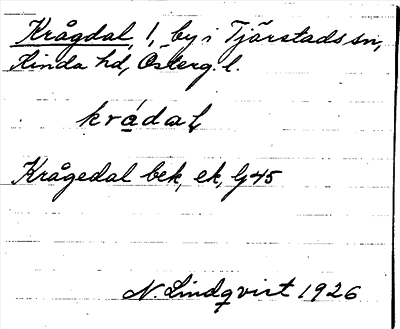 Krågdal, 1, by i Tjärstads sn,
Kinda hd, Österg. l.
krádaḷ
Krågedal bek, ek, Gj 45
N. Lindqvist 1926